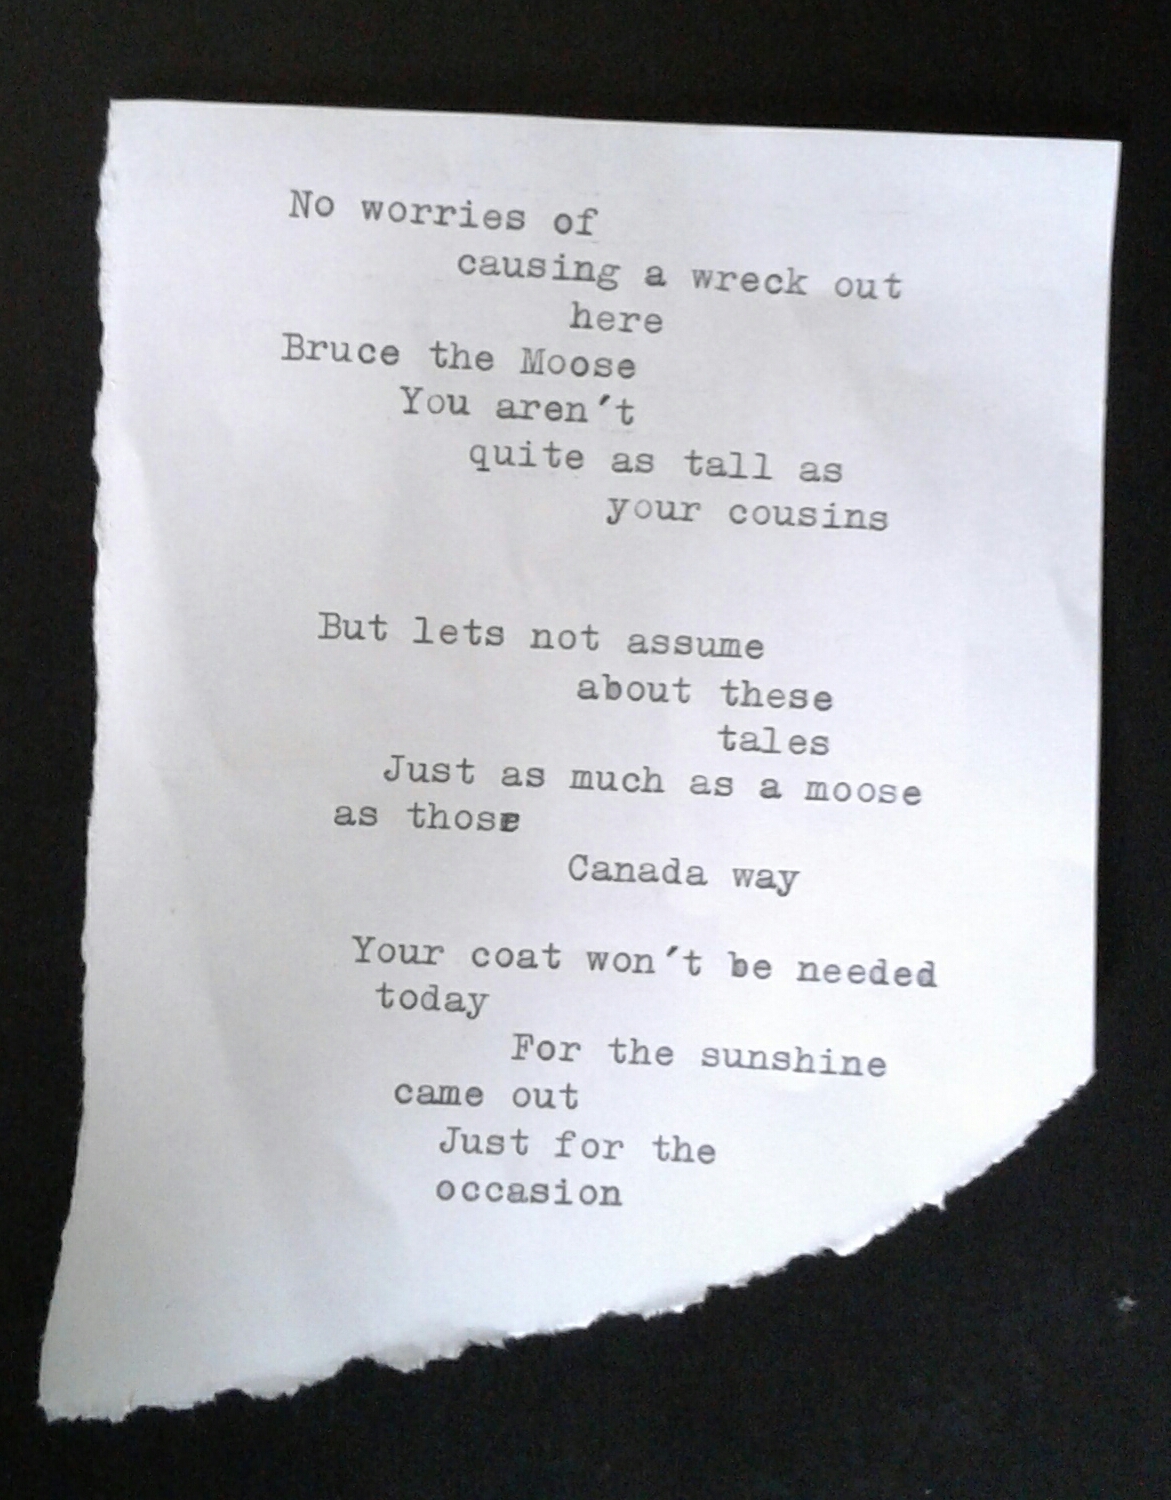 No worries of
causing a wreck out
here
Bruce the Moose
You aren't
quite as tall as
your cousins
But lets not assume
about these
tales
Just as much as a moose
as those
Canada way
Your coat won't be needed
today
For the sunshine
came out
Just for the
occasion